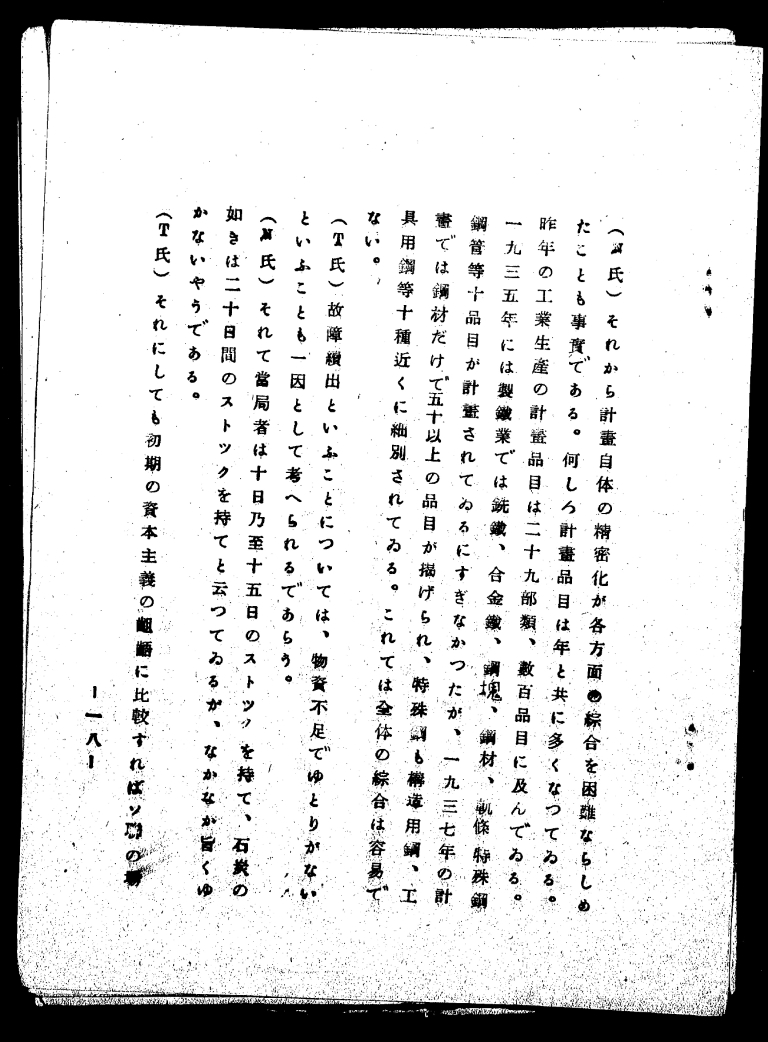 (M氏)それから計畫自体の精密化が各方面の綜合を困難ならしめ
たことも事實である。何しろ計畫品目は年と共に多くなつてゐる。
昨年の工業生産の計畫品目は二十九部類、數百品目に及んでゐる。
一九三五年には製鐵業では銑鐵、合金鐵、鋼塊、鋼材、軌條特殊鋼
鋼管等十品目が計畫されてゐるにすぎなかつたが、一九三七年の計
畫では鋼材だけで五十以上の品目が揭げられ、特殊鋼も構造用鋼、工
具用鋼等十種近くに細別されてゐる。これでは全体の綜合は容易で
ない。
(T氏)故障續出といふことについては、物資不足でゆとりがない
といふことも一因として考へられるであらう。
(M氏)それで當局者は十日乃至十五日のストツクを持て、石炭の
如きは二十日間のストツクを持てと云つてゐるが、なかなか旨くゆ
かないやうである。
(T氏)それにしても初期の資本主義の齟齬に比較すればソ聯の場
—一八—